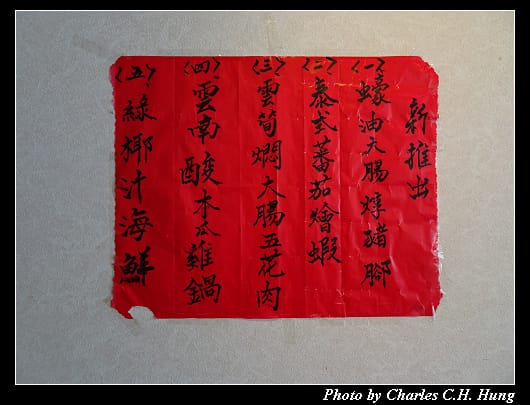 新推出
〈一〉蠔油大腸焢豬腳
〈二〉泰式蕃茄燴蝦
〈三〉雲筍燜大腸五花肉
〈四〉雲南酸木瓜雞鍋
〈五〉綠椰汁海鮮
Photo by Charles C.H. Hung